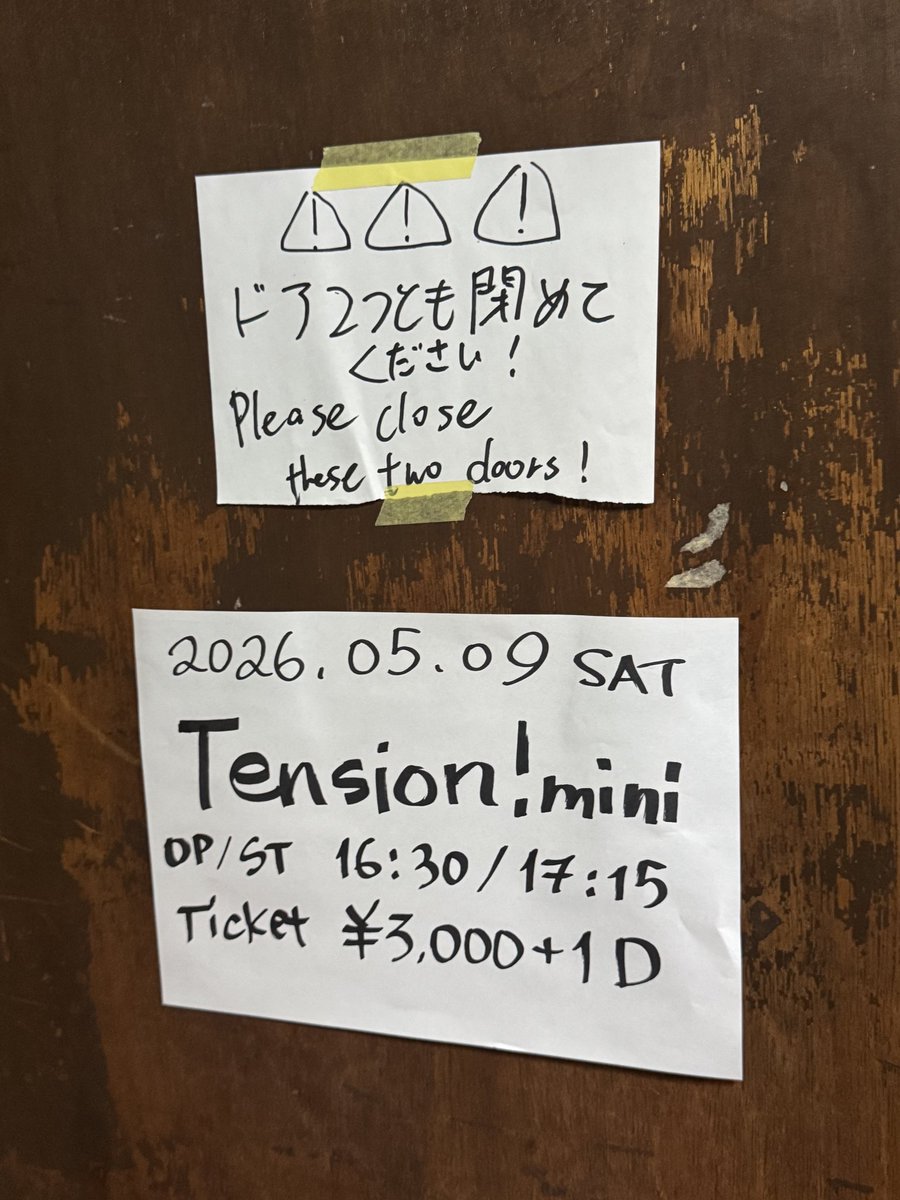 ドア2つとも閉めて
ください!
Please close
these two doors!
2026.05.09 SAT
Tension!mini
OP/ST 16:30/17:15
Ticket ¥3,000+1D